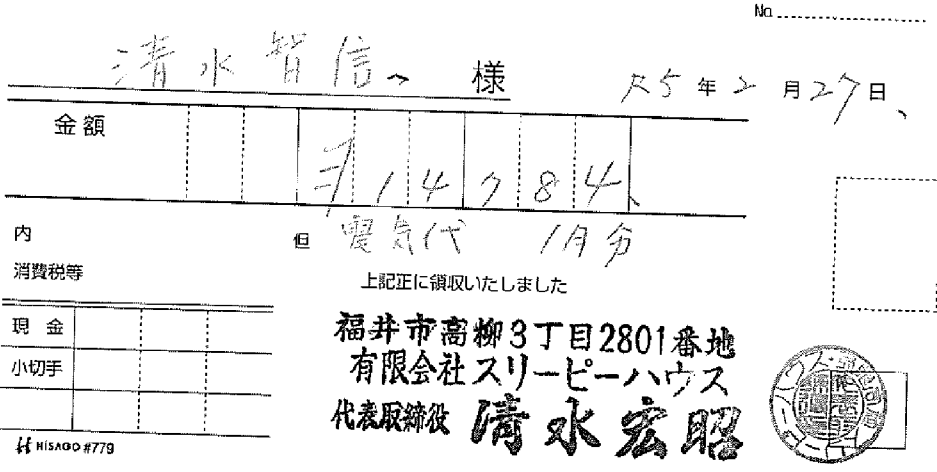 No.
清水智信 様
R5年2月27日
金額 ¥14784
内
但 電気代 1月分
消費税等
上記正に領収いたしました
現金
小切手
福井市高柳3丁目2801番地
有限会社スリーピーハウス
代表取締役 清水宏昭
HISAGO #779